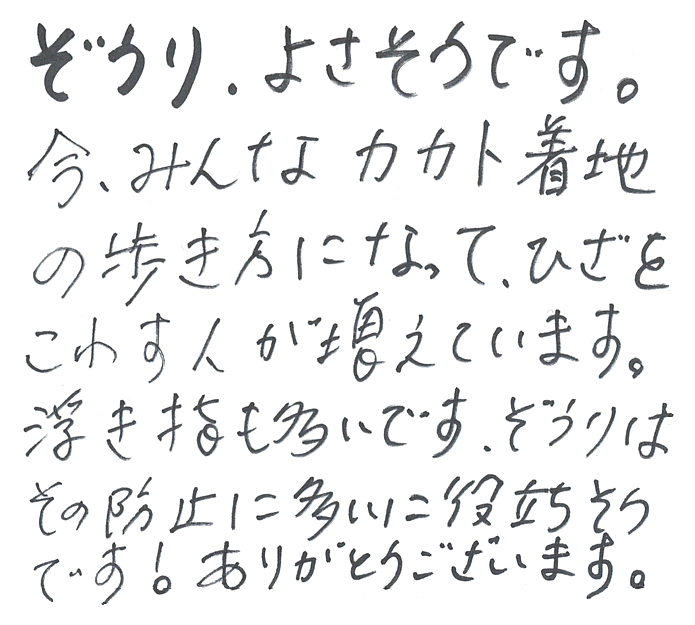 ぞうり、よさそうです。
今、みんな カカト着地
の歩き方になって、ひざを
こわす人が増えています。
浮き指も多いです、ぞうりは
その防止に多いに役立ちそう
です!ありがとうございます。